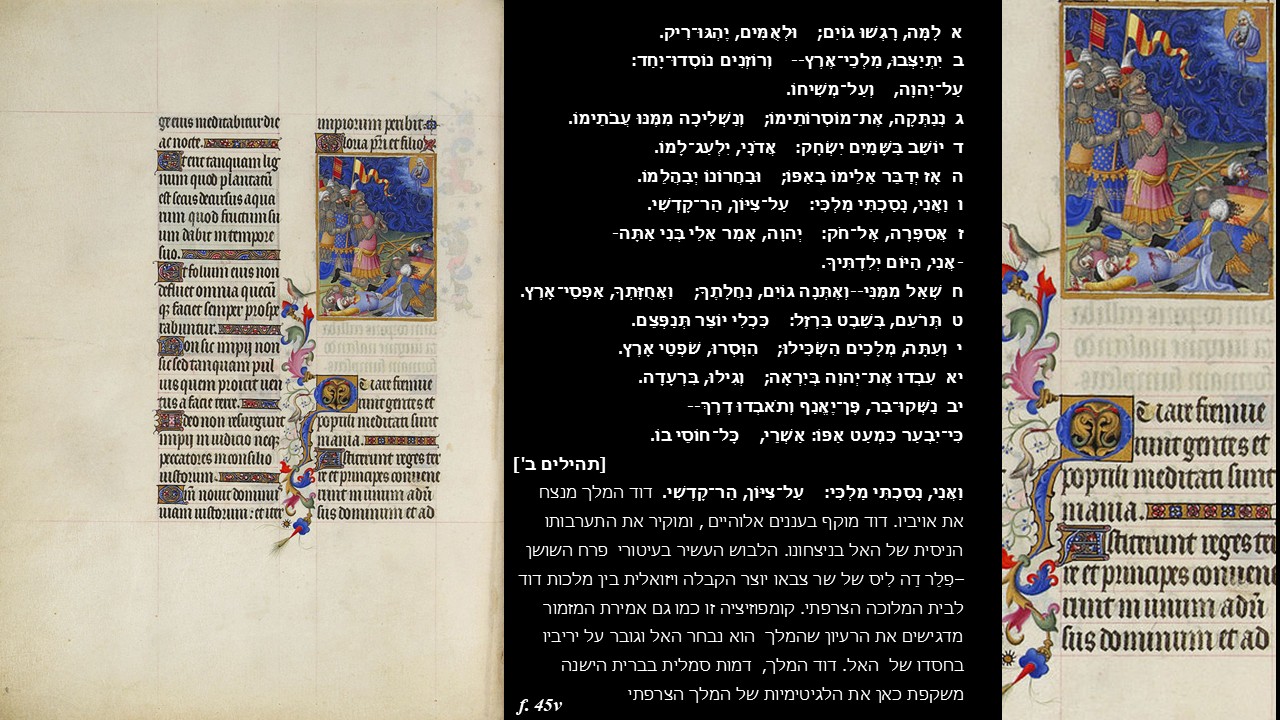 ge eius meditabitur die
ac nocte.
Et erit tanquam lig
num quod plantatū
est secus decursus aqua
rum quod fructum su
um dabit in tempore
suo.
Et folium eius non
defluet omnia quecū
q; faciet semper prospe
rabuntur.
Non sic impii non
sic sed tanquam pul
uis quem proicit uen
tus a facie terre.
Ideo non resurgunt
impii in iudicio neq;
peccatores in consilio
iustorum.
Qm̄ nouit dominus
uiam iustorum: et iter
impiorum peribit
Gloria pri et filio
Quare fremue
runt gentes et
populi meditati sunt
inania.
Astiterunt reges ter
re et principes conuene
runt in unum adū
sus dominum et ad
א לָמָּה, רָגְשׁוּ גוֹיִם; וּלְאֻמִּים, יֶהְגּוּ-רִיק.
ב יִתְיַצְּבוּ, מַלְכֵי-אֶרֶץ-- וְרוֹזְנִים נוֹסְדוּ-יָחַד:
עַל-יְהוָה, וְעַל-מְשִׁיחוֹ.
ג נְנַתְּקָה, אֶת-מוֹסְרוֹתֵימוֹ; וְנַשְׁלִיכָה מִמֶּנּוּ עֲבֹתֵימוֹ.
ד יוֹשֵׁב בַּשָּׁמַיִם יִשְׂחָק: אֲדֹנָי, יִלְעַג-לָמוֹ.
ה אָז יְדַבֵּר אֵלֵימוֹ בְאַפּוֹ; וּבַחֲרוֹנוֹ יְבַהֲלֵמוֹ.
ו וַאֲנִי, נָסַכְתִּי מַלְכִּי: עַל-צִיּוֹן, הַר-קָדְשִׁי.
ז אֲסַפְּרָה, אֶל-חֹק: יְהוָה, אָמַר אֵלַי בְּנִי אַתָּה-
-אֲנִי, הַיּוֹם יְלִדְתִּיךָ.
ח שְׁאַל מִמֶּנִּי--וְאֶתְּנָה גוֹיִם, נַחֲלָתֶךָ; וַאֲחֻזָּתְךָ, אַפְסֵי-אָרֶץ.
ט תְּרֹעֵם, בְּשֵׁבֶט בַּרְזֶל: כִּכְלִי יוֹצֵר תְּנַפְּצֵם.
י וְעַתָּה, מְלָכִים הַשְׂכִּילוּ; הִוָּסְרוּ, שֹׁפְטֵי אָרֶץ.
יא עִבְדוּ אֶת-יְהוָה בְּיִרְאָה; וְגִילוּ, בִּרְעָדָה.
יב נַשְּׁקוּ-בַר, פֶּן-יֶאֱנַף וְתֹאבְדוּ דֶרֶךְ--
כִּי-יִבְעַר כִּמְעַט אַפּוֹ: אַשְׁרֵי, כָּל-חוֹסֵי בוֹ.
[תהילים ב']
וַאֲנִי, נָסַכְתִּי מַלְכִּי: עַל-צִיּוֹן, הַר-קָדְשִׁי. דוד המלך מנצח
את אויביו. דוד מוקף בעננים אלוהיים , ומוקיר את התערבותו
הניסית של האל בניצחונו. הלבוש העשיר בעיטורי פרח השושן
–פְלֶר דֶה לִיס של שר צבאו יוצר הקבלה ויזואלית בין מלכות דוד
לבית המלוכה הצרפתי. קומפוזיציה זו כמו גם אמירת המזמור
מדגישים את הרעיון שהמלך הוא נבחר האל וגובר על יריביו
בחסדו של האל. דוד המלך, דמות סמלית בברית הישנה
משקפת כאן את הלגיטימיות של המלך הצרפתי
f. 45v
Quare fremue
runt gentes et
populi meditati sunt
inania.
Astiterunt reges ter
re et principes conuene
runt in unum adū
sus dominum et ad